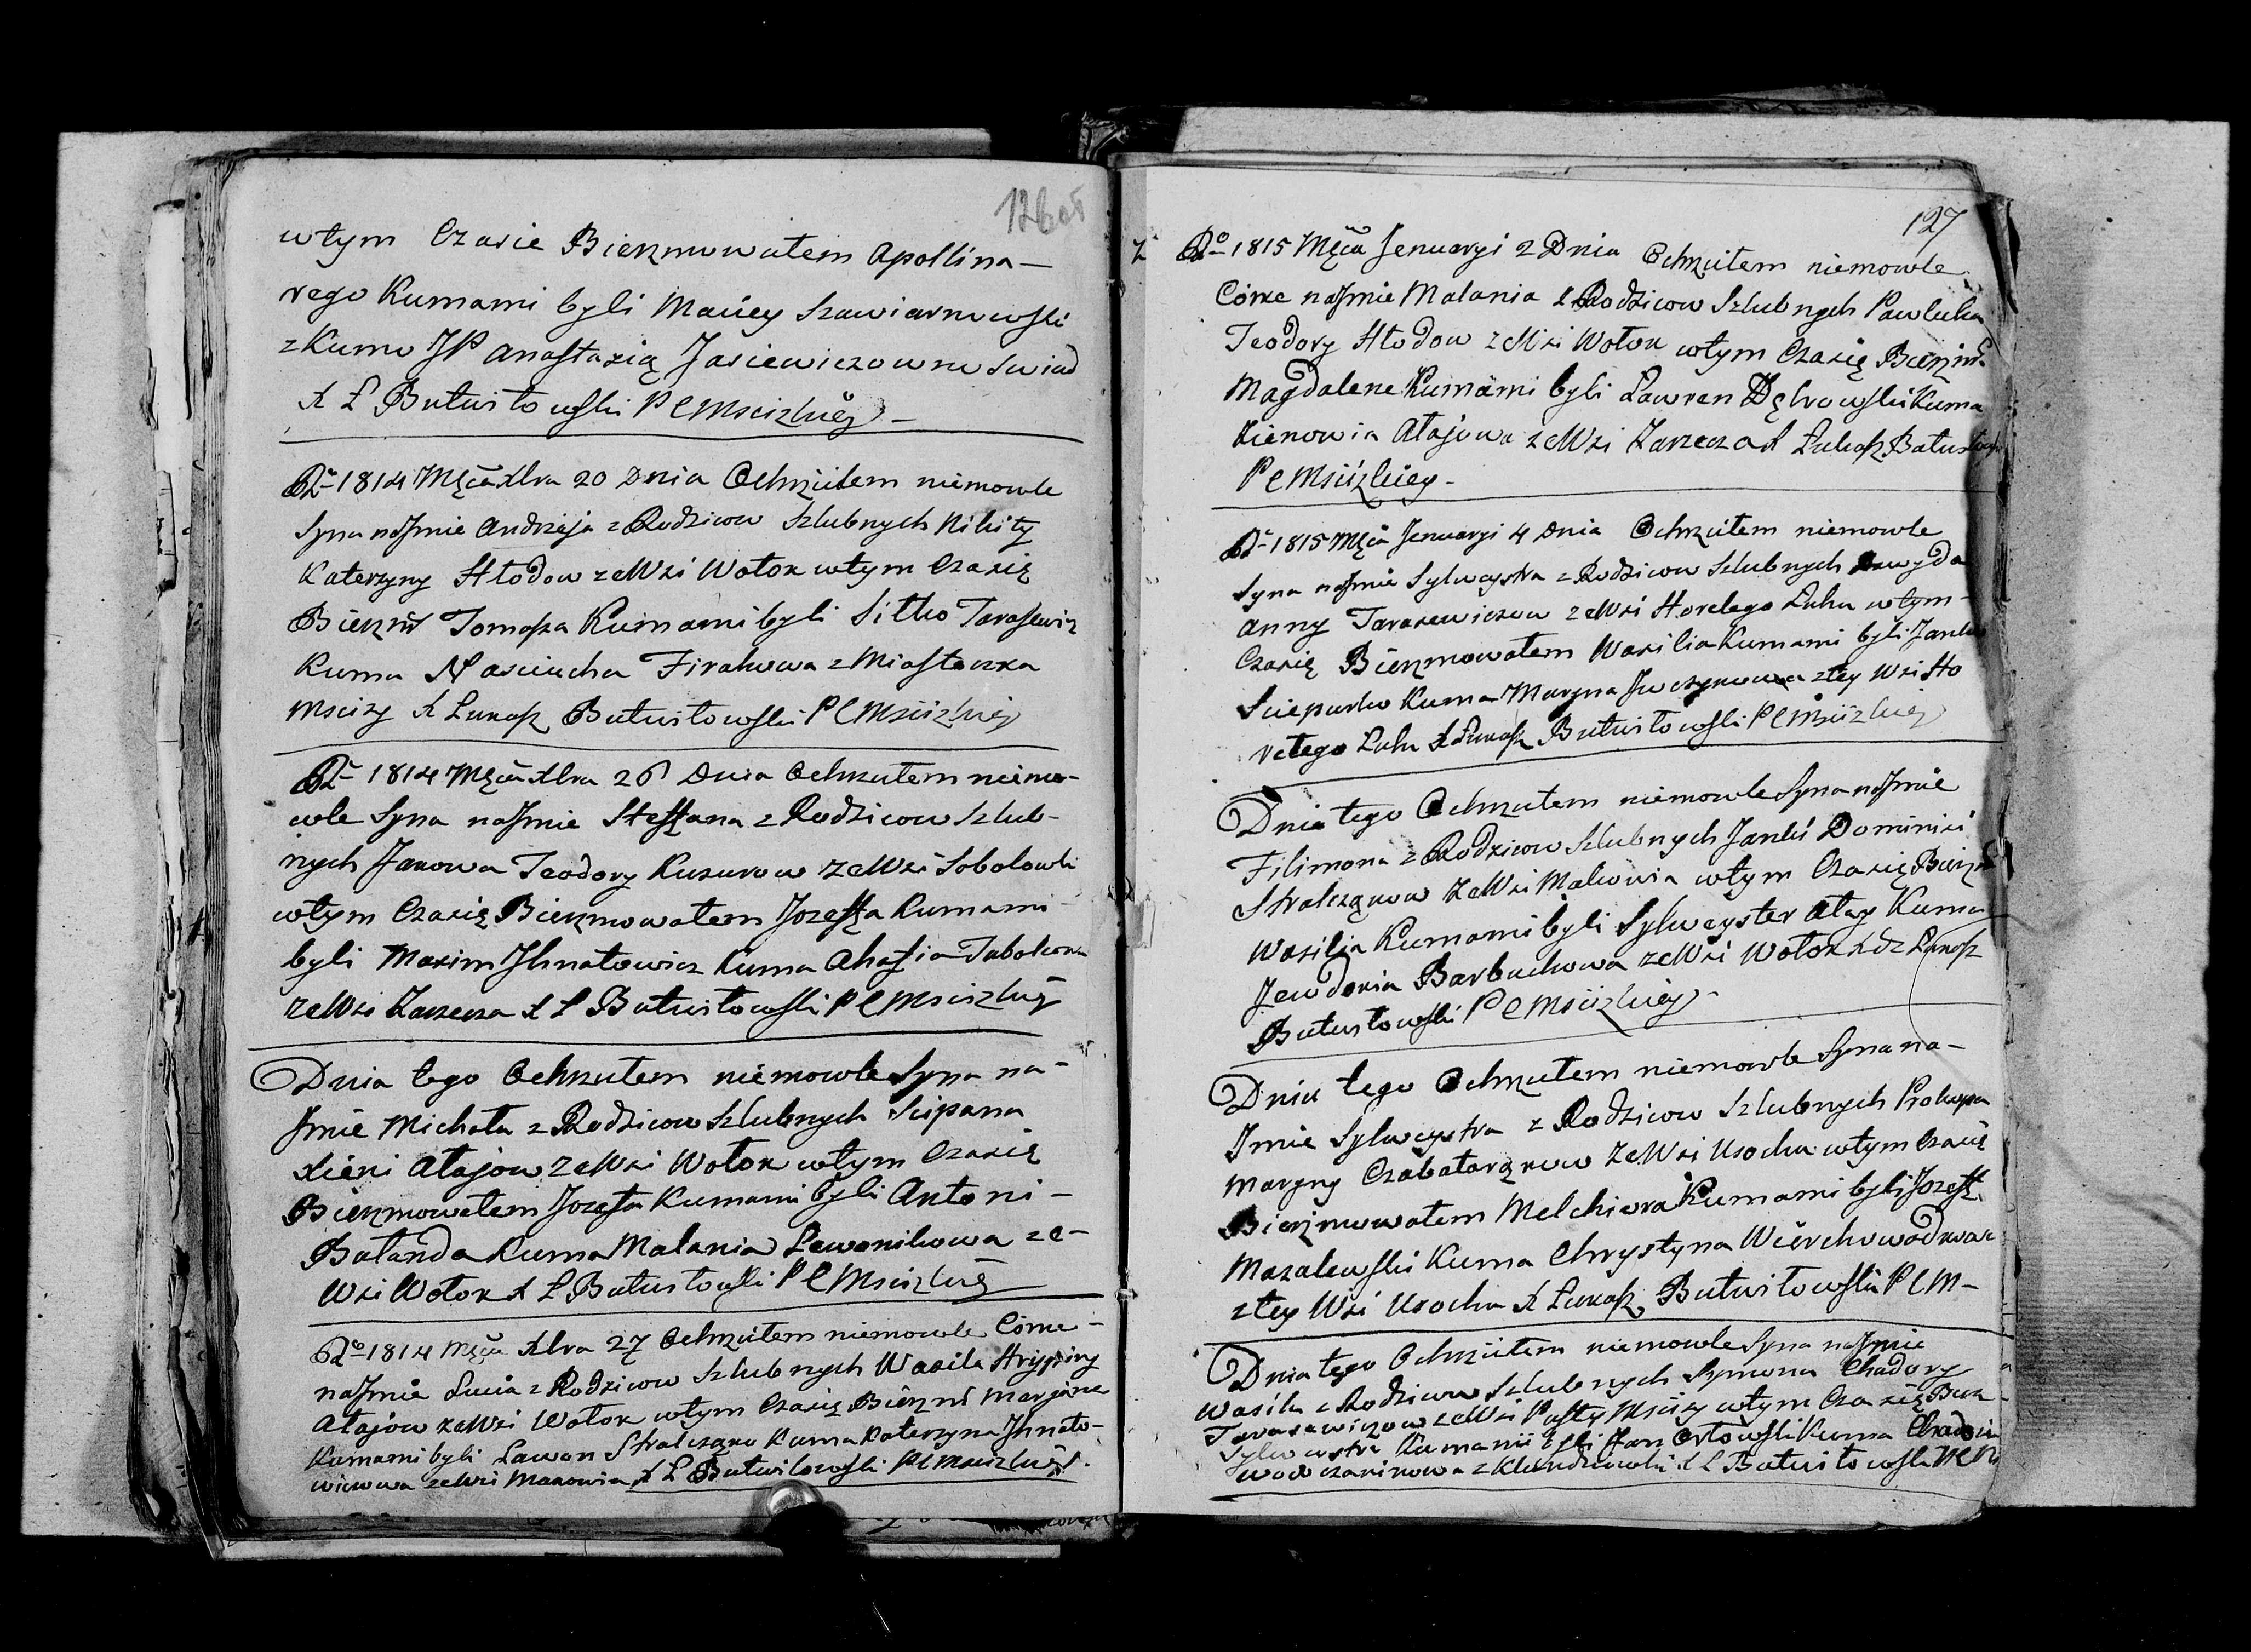 126об
wtym Czasie Bierzmowałem Apollina-
rego Kumami byli Maciey Szawiarnowski
z Kumo JP Anastazią Jasiewiczowno Swiad
X Ł Butwiłowski P C Mscizkiey -
Ro 1814 Mca Xbra 20 Dnia Ochrzciłem niemowle
Syna na Jmie Andrzeja z Rodzicow Szlubnych Nikity
Katerzyny Hłodow ze Wsi Wołok wtym Czasię
Bierzm Tomasza Kumami byli Sitko Tarasewicz
Kuma Nasciucha z Miasteczka
Mscizy X Łukasz Butwiłowski P C Mscizkiey
Ro 1814 Mca Xbra 26 Dnia Ochrzciłem niemo-
wle Syna na Jmie Steffana z Rodzicow Szlub-
nych Jakowa Teodory ze Wsi Sobolowki
wtym Czasię Bierzmowałem Jozeffa Kumami
byli Maxim Jhnatowicz Kuma Ahafia
ze Wsi Zarzecza X Ł Butwiłowski P C Mscizkiey
Dnia tego Ochrzciłem niemowle Syna na-
Jmie Michała z Rodzicow Szlubnych Scipana
Xieni Ałajow ze Wsi Wołok wtym Czasię
Bierzmowałem Jozefa Kumami byli Antoni-
Bałanda Kuma Malania Lewonikowa ze-
Wsi Wołok X Ł Butwiłowski P C Mscizkiey
Ro 1814 Mca Xbra 27 Ochrzciłem niemowle Córke-
na Jmie Łucia z Rodzicow Szlubnych Wasila Hryppiny
Ałajow ze Wsi Wołok wtym Czasię Bierzm Marjane
Kumami byli Lawon Stralcząko Kuma Katerzyna Jhnato-
wiczowa ze Wsi X Ł Butwiłowski P C Mscizkiey
127
Ro 1815 Mca Jenuaryi 2 Dnia Ochrzciłem niemowle
Córke na Jmie Malania z Rodzicow Szlubnych Pawluka
Teodory Hłodow ze Wsi Wołok wtym Czasię Bierzm
Magdalene Kumami byli Ławren Dąbrowski Kuma
Zienowia Ałajowa ze Wsi Zarzecza X Łukasz
P C Mscizkiey -
Ro 1815 Mca Jenuaryi 4 Dnia Ochrzciłem niemowle
Syna na Jmie Sylweystra z Rodzicow Szlubnych Dawyda
Anny Tarasewiczow ze Wsi Horelego Łuhu wtym-
Czasię Bierzmowałem Wasilia Kumami byli Janko
Sciepurko Kuma Maryna z tey Wsi Ho
rełego Łuhu X Łukasz Butwiłowski P C Mscizkiey
Dnia tego Ochrzciłem niemowle Syna na Jmie
Filimona z Rodzicow Szlubnych Janki Dominici
Stralcząkow ze Wsi wtym Czasię Bierzm
Wasilja Kumami byli Sylweyster Ałay Kuma
Jewdokia Barbuchowa ze Wsi Wołok Xdz Łukasz
Butwiłowski P C Mscizkiey -
Dnia tego Ochrzciłem niemowle Syna na-
Jmie Sylweystra z Rodzicow Szlubnych Prokopa
Maryny Czabatarąkow ze Wsi Usocha wtym Czasię
Bierzmowałem Melchiora Kumami byli Jozeff
Mazalewski Kuma Chrystyna
z tey Wsi Usocha X Łukasz Butwiłowski P C M-
Dnia tego Ochrzciłem niemowle Syna na Jmie
Wasila z Rodzicow Szlubnych Symona Chadory
Tarasewiczow ze Wsi Msciży wtym Czasię Bierz
Sylwestra Kumami byli Jan Orłowski Kuma
X Ł Butwiłowski